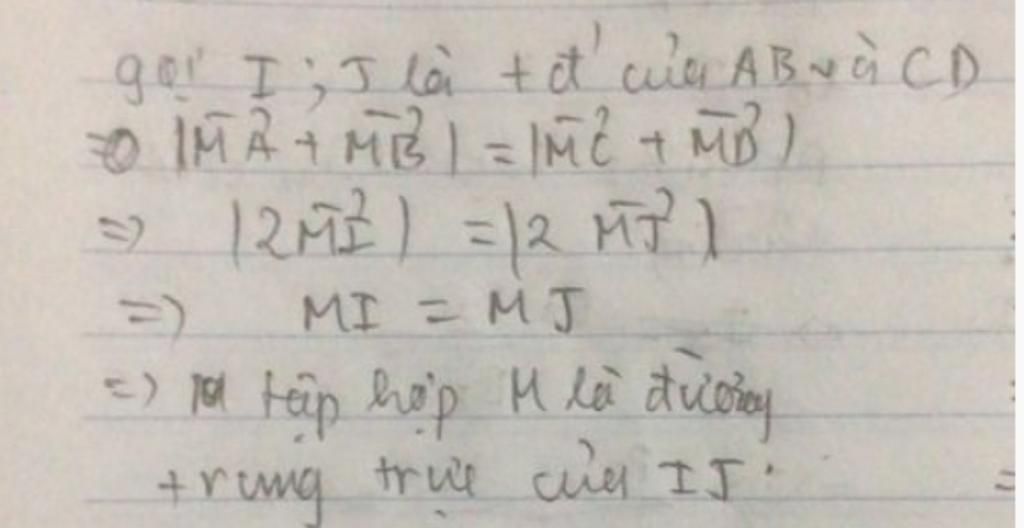 gọi I ; J là tđ' của AB và CD
=> |M̄Ā + M̄B̄| = |M̄C̄ + M̄D̄|
=> |2M̄Ī| = |2 M̄J̄|
=> MI = MJ
=> tập hợp M là đường
trung trực của IJ.